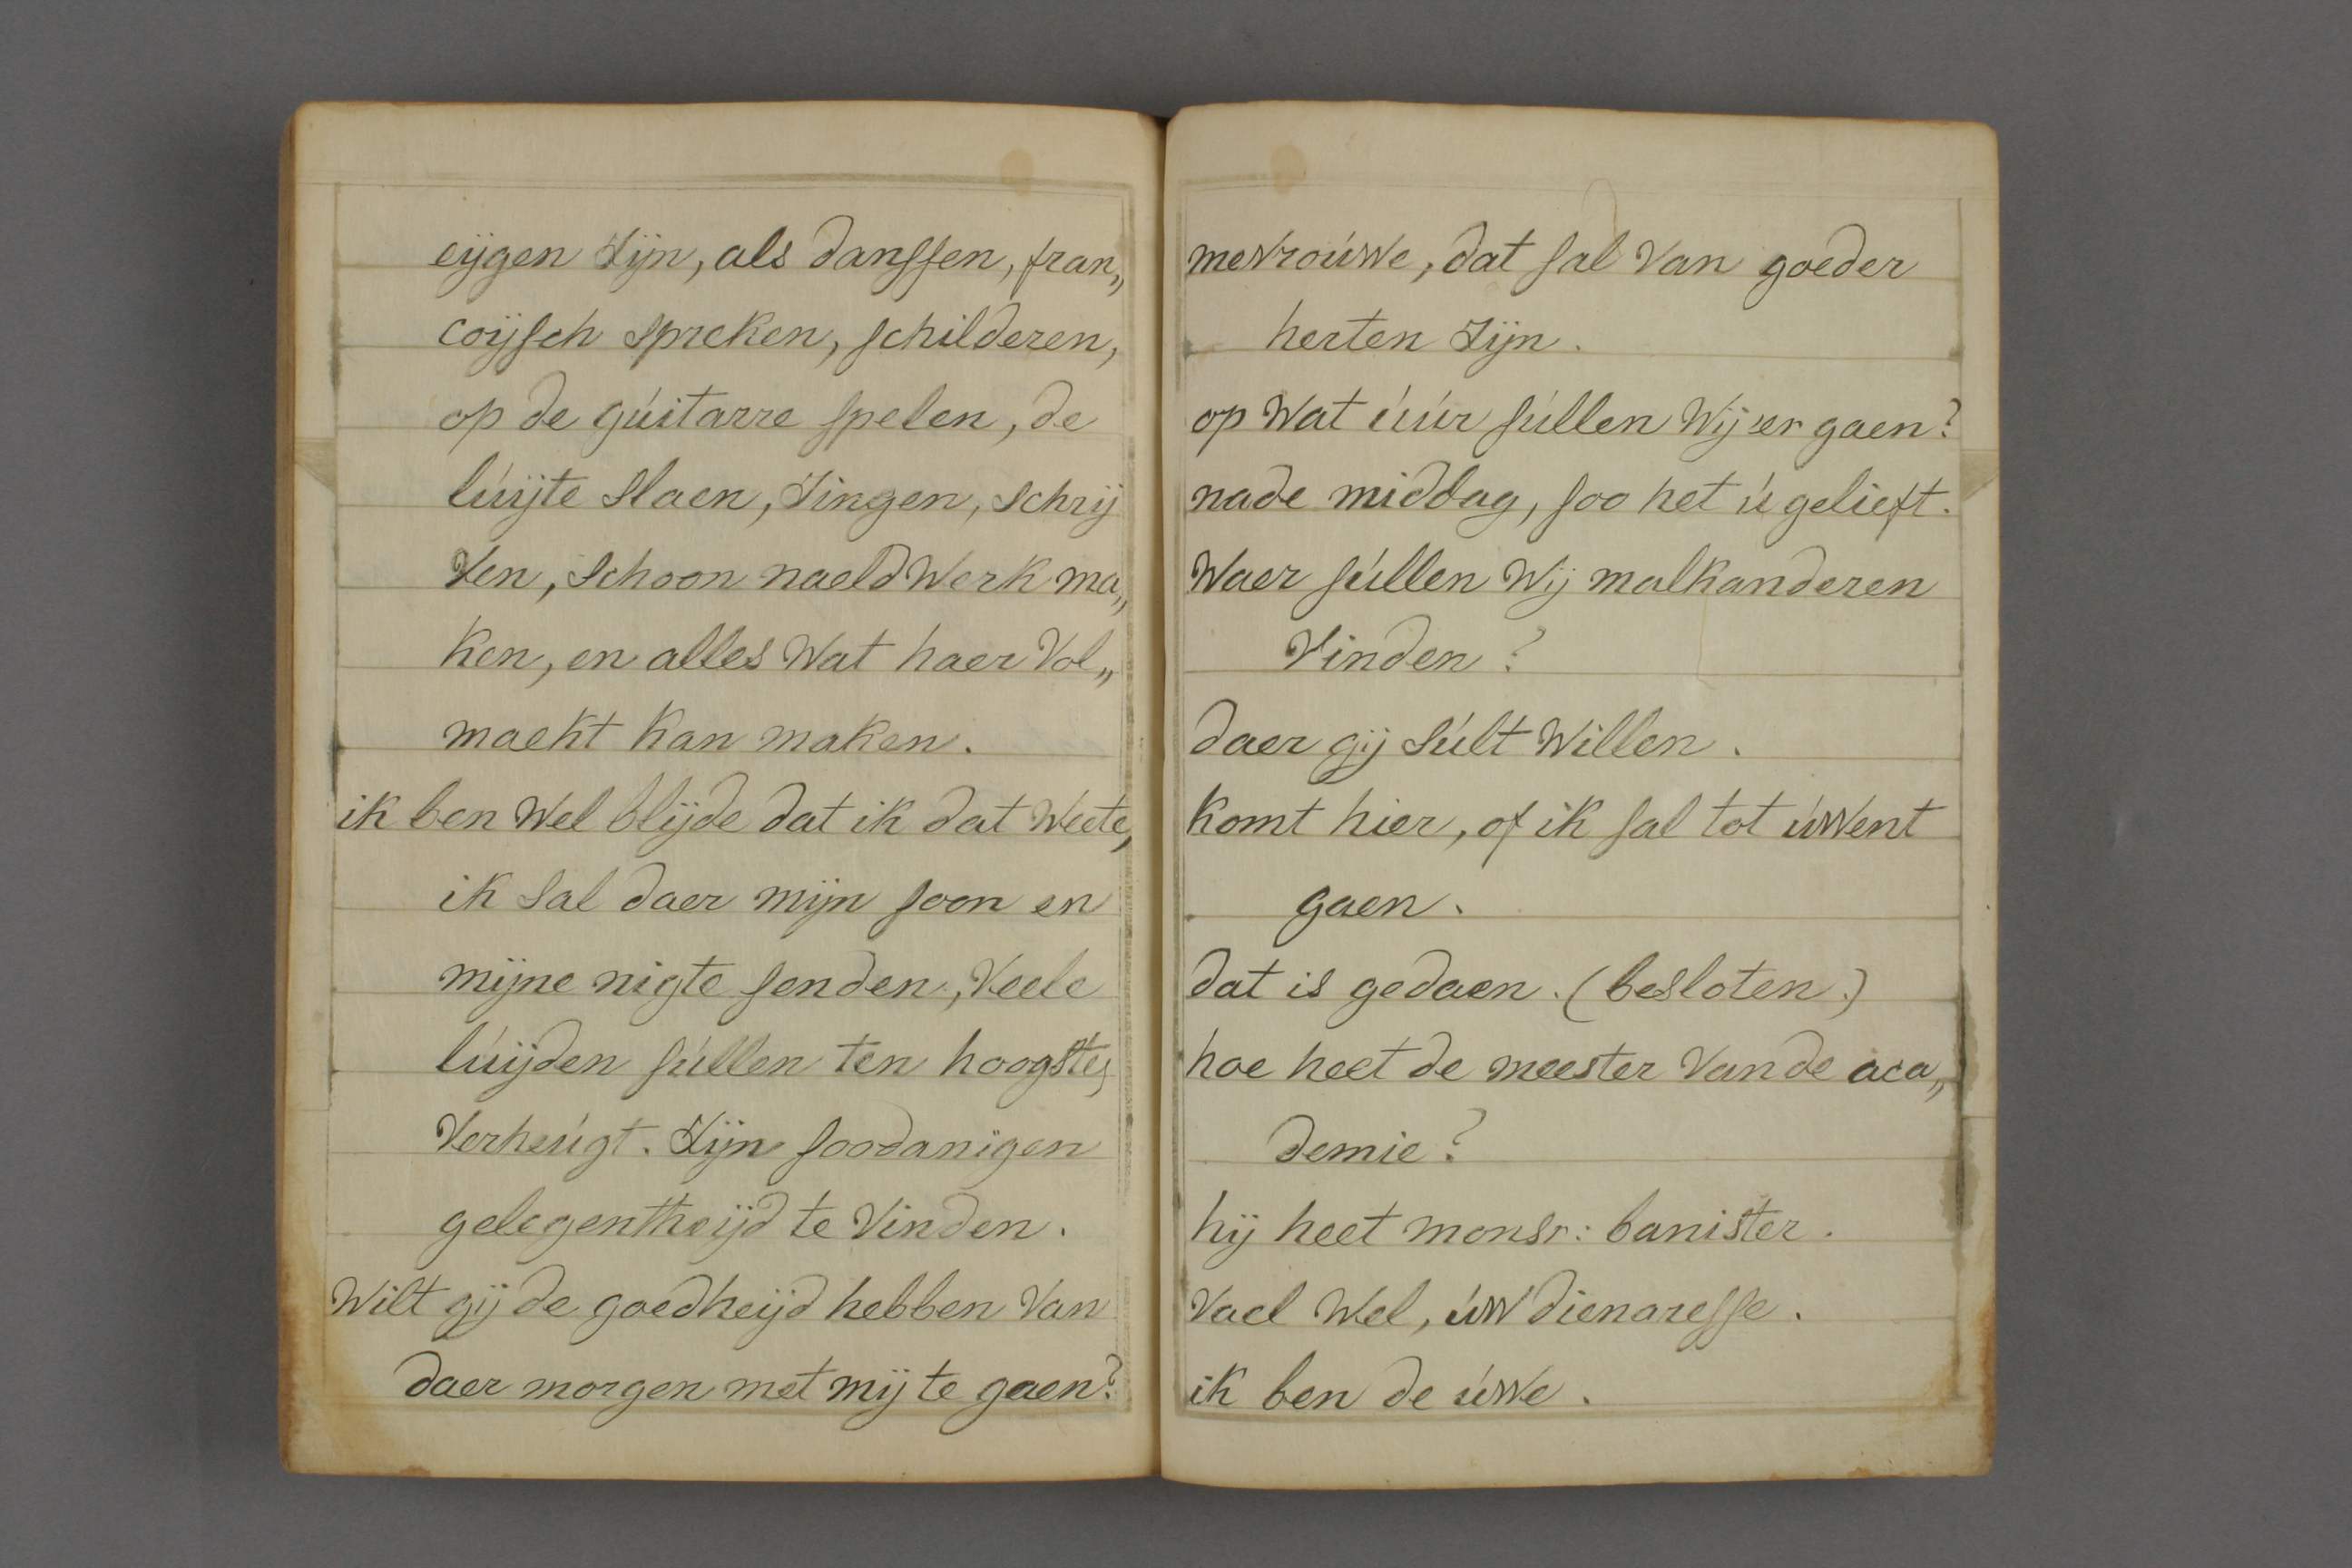 eijgen Zijn, als danssen, fran„
coijsch spreken, schilderen,
op de gúitarre spelen, de
lúijte slaen, Zingen, schrij
Ven, schoon naeldWerk ma„
ken, en alles Wat haer Vol„
maekt kan maken.
ik ben Wel blijde dat ik dat Weete,
ik sal daer mijn soon en
mijne nigte senden, Veele
lúijden súllen ten hoogste,
Verheúgt. Zijn soodanigen
gelegentheijd te Vinden.
Wilt gij de goedheijd hebben Van
daer morgen met mij te gaen?
mevroúwe, dat sal Van goeder
herten Zijn.
op Wat úúr súllen Wij er gaen?
nade middag, soo het ú gelieft.
Waer súllen Wij malkanderen
Vinden?
daer gij súlt Willen.
komt hier, of ik sal tot úwent
gaen.
dat is gedaen. (besloten.)
hoe heet de meester Van de aca„
demie?
hij heet monsr: banister.
Vael Wel, úw dienaresse.
ik ben de úwe.